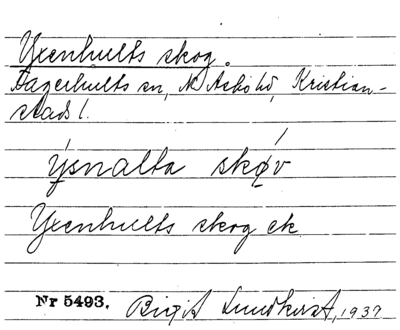 Yxenhults skog.
Fagerhults sn, N Åsbo hd, Kristian-
stads l.
ýsnalta skǫ́v
Yxenhults skog ek
Nr 5493. Birgit Lundkvist, 1937